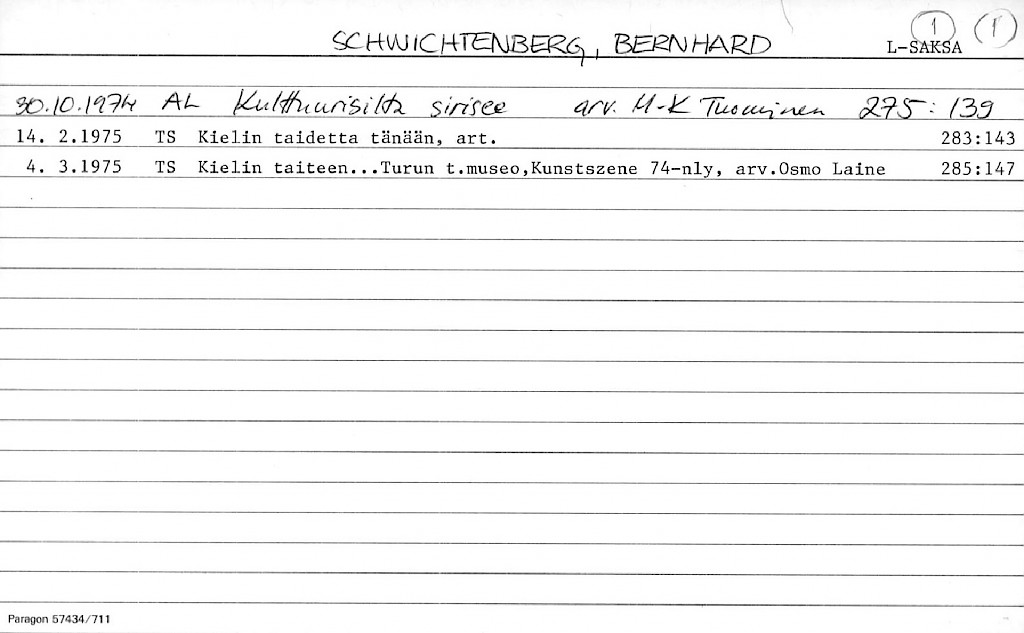 SCHWICHTENBERG, BERNHARD
1 1
L-SAKSA
30.10.1974 AL Kulttuurisilta sirisee arv. M-K Tuominen 275:139
14. 2.1975 TS Kielin taidetta tänään, art. 283:143
4. 3.1975 TS Kielin taiteen...Turun t.museo,Kunstszene 74-nly, arv.Osmo Laine 285:147
Paragon 57434/711